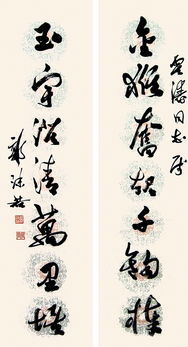 同志
金猴奮起千鈞棒
玉宇澄清萬里埃